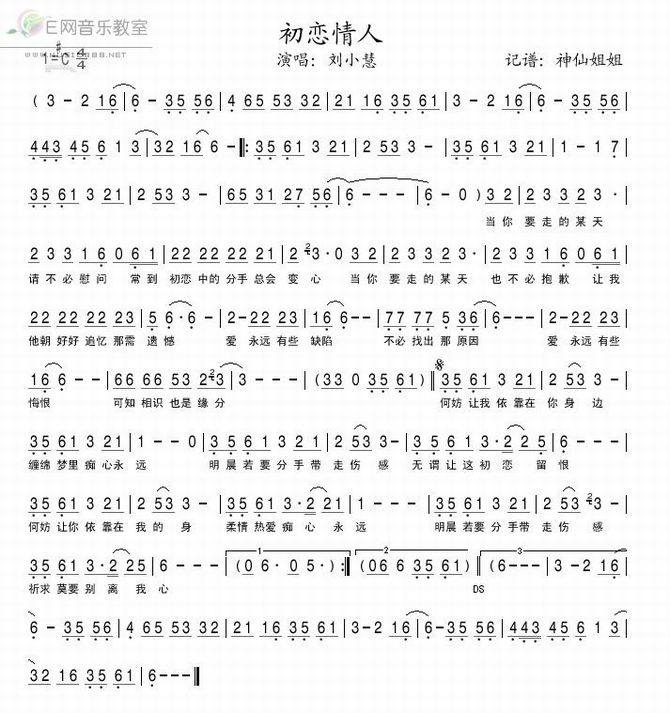 E网音乐教室
初恋情人
1=#C 4/4 演唱：刘小慧 记谱：神仙姐姐
( 3 - 2 16 | 6 - 35 56 | 4 65 53 32 | 21 16 35 61 | 3 - 2 16 | 6 - 35 56 |
443 45 6 1 3 | 32 16 6 - ‖: 35 61 3 21 | 2 53 3 - | 35 61 3 21 | 1 - 1 7 |
35 61 3 21 | 2 53 3 - | 65 31 27 56 | 6 - - - | 6 - 0 ) 32 | 2 3 3 2 3 ·
当你 要走的某天
2 3 3 1 6 0 61 | 22 22 22 21 | 2 3 · 0 32 | 2 3 3 2 3 · | 2 3 3 1 6 0 61 |
请不必慰问 常到 初恋中的分手总会 变心 当你 要走的某天 也不必抱歉 让我
22 22 22 23 | 5 6 · 6 · | 2 - 22 23 | 16 6 - - | 77 77 5 36 | 6 - - - | 2 - 22 23 |
他朝 好好 追忆 那需 遗憾 爱 永远有些 缺陷 不必 找出 那 原因 爱 永远有些
16 6 - - | 66 66 53 223 | 3 - - - | (33 0 35 61) ‖ 35 61 3 21 | 2 53 3 - |
悔恨 可知 相识 也是 缘分 何妨 让我 依 靠在 你 身 边
35 61 3 21 | 1 - - 0 | 35 61 3 21 | 2 53 3 - | 35 61 3·2 2 5 | 6 - - - |
缠绵 梦里 痴心永 远 明晨 若要 分 手带 走伤 感 无谓 让这 初恋 留 恨
35 61 3 21 | 2 53 3 - | 35 61 3·2 21 | 1 - - 0 | 35 61 3 21 | 2 53 3 - |
何妨 让你 依 靠在 我 的 身 柔情 热爱 痴 心 永 远 明晨 若要 分 手带 走伤 感
35 61 3·2 25 | 6 - - - | (0 6 · 0 5 · ) :‖ (06 6 35 61) | 6 - - - | 3 - 2 16 |
祈求 莫要 别 离 我 心 DS
6 - 35 56 | 4 65 53 32 | 21 16 35 61 | 3 - 2 16 | 6 - 35 56 | 443 45 6 1 3 |
32 16 35 61 | 6 - - - ‖